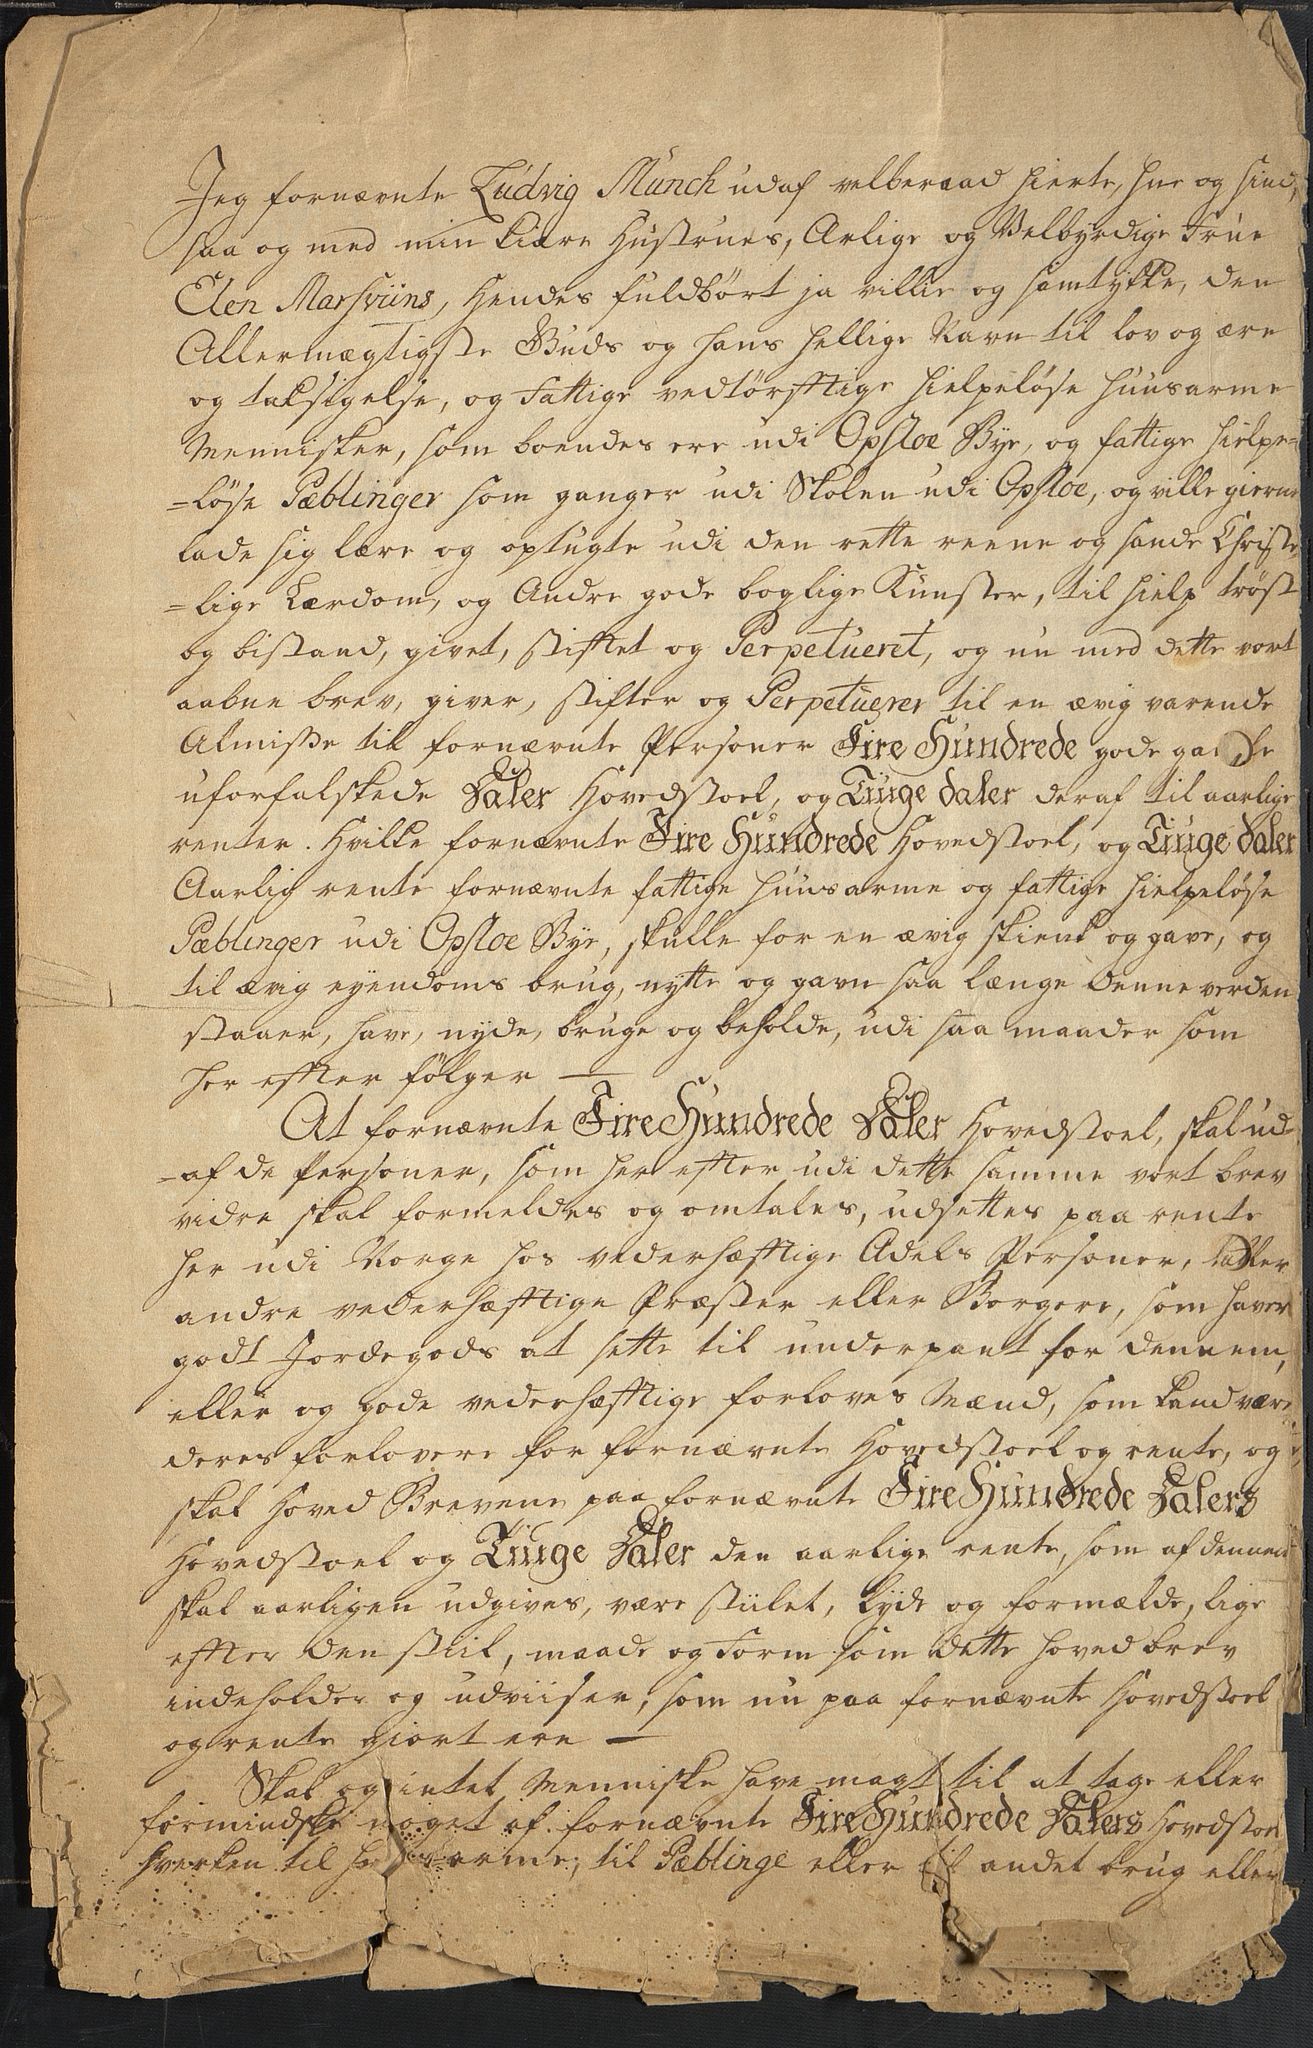 Jeg fornævnte Ludvig Munch udaf velberaad hierte, hue og sind,
saa og med min kiære Hustrues, Ærlige og Velbyrdige Frue
Elen Marsviins, Hendes fuldbørt ja villie og samtykke, den
Allermægtigste Guds og hans hellige Navn til lov og ære
og taksigelse, og Fattige vedtørfftige hielpeløse huusarme
Mennisker, som boendes ere udi Opsloe Bye, og fattige hielpe-
=løse Pæblinger som ganger udi Skolen udi Opsloe, og ville gierne
lade sig lære og optugte udi den rette reene og sande Christe-
=lige Lærdom, og Andre gode boglige Kunster, til hielp trøst
og bistand, givet, stifftet og Perpetueret, og nu med dette vort
aabne brev, giver, stifter og Perpetuerer til en ævig varende
Almisse til fornævnte Personer Fire Hundrede gode ganske
uforfalskede Daler Hovedstoel, og Tiuge daler deraf til aarlige
renter. Hvilke fornævnte Fire Hundrede Hovedstoel, og Tiuge daler
Aarlig rente fornævnte fattige huusarme og fattige hielpeløse
Pæblinger udi Opsloe Bye, skulle for en ævig skienk og gave, og
til ævig eyendoms brug, nytte og gavn saa længe denne verden
staaer, have, nyde, bruge og beholde, udi saa maader som
her effter følger —
At fornævnte Fire Hundrede Daler Hovedstoel, skal ud-
=af de Personer, som her effter udi dette samme vort brev
vidre skal formeldes og omtales, udsettes paa rente
her udi Norge hos vederhæfftige Adels Personer, eller
andre vederhæfftige Præster eller Borgere, som haver
godt Jordegods at sette til underpant for dennem,
eller og gode vederhæfftige forloves Mænd, som kand være
deres forlovere for fornævnte Hovedstoel og rente, og
skal Hoved Brevene paa fornævnte Fire Hundrede Dalers
Hovedstoel og Tiuge Daler den aarlige rente, som af dennem
skal aarligen udgives, være stiilet, lyde og formælde, lige
effter den stiil, maade og Form som dette hoved brev
indeholder og udviiser, som nu paa fornævnte Hovedstoel
og rente giort ere —
Skal og intet Menniske have magt til at tage eller
formindske noget af fornævnte Fire Hundrede Dalers Hovedstoel
hverken til huusarme, til Pæblinge eller til andet brug eller